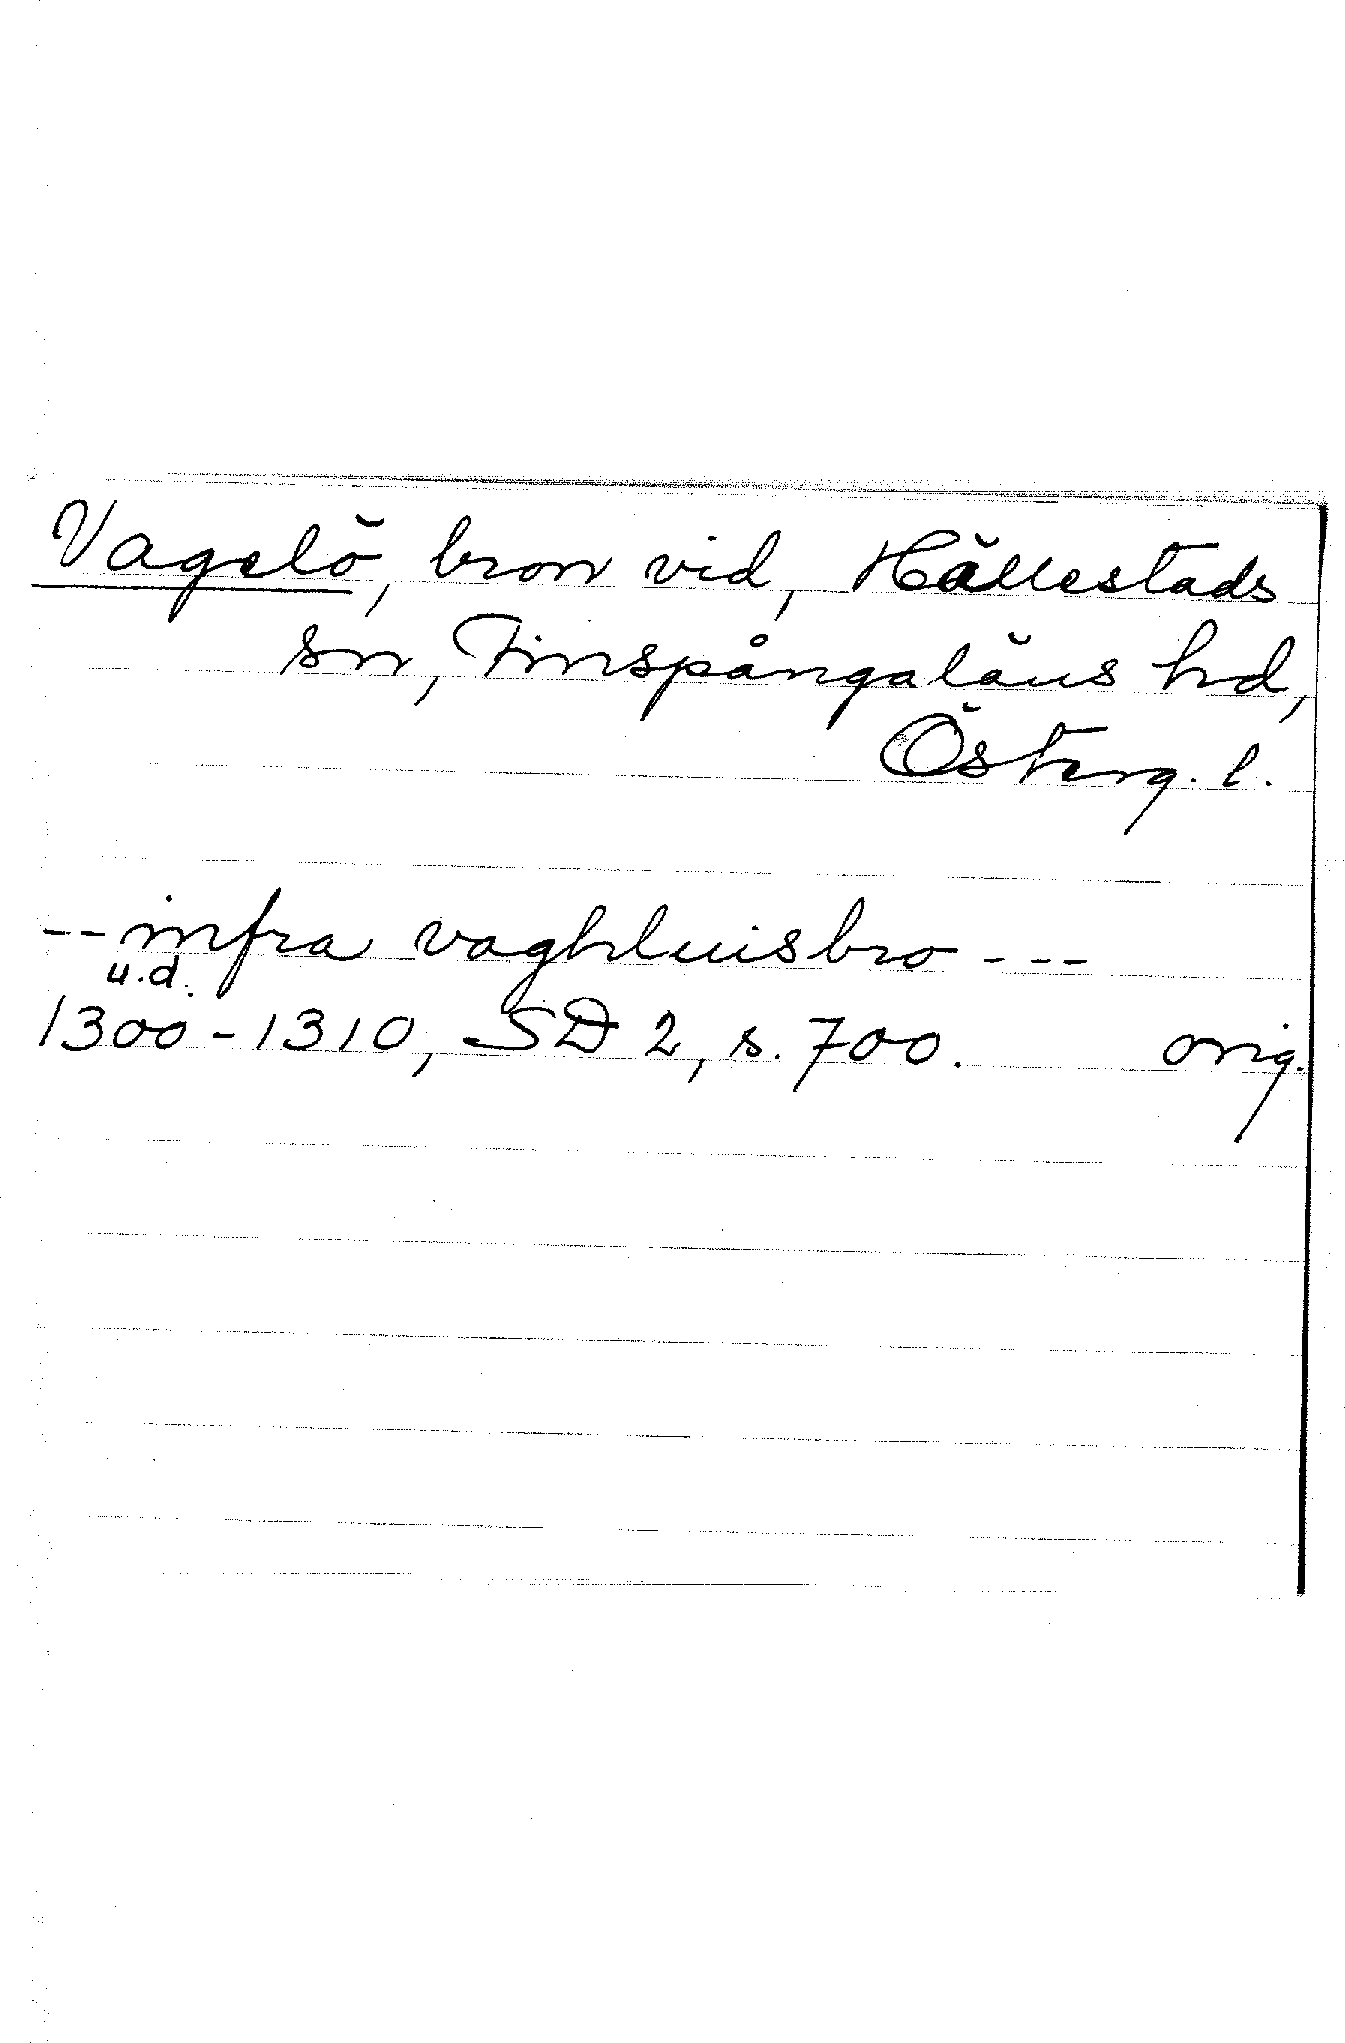 Vagelö, bron vid, Hällestads
sn, Finspångaläns hd,
Österg. l.
-- infra vaghluisbro ---
u.d.
1300-1310, SD 2, s. 700. orig.